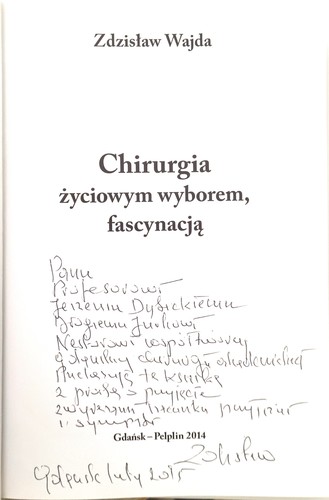 Zdzisław Wajda
Chirurgia
życiowym wyborem,
fascynacją
Panu
Profesorowi
Jerzemu Dybickiemu
Drogiemu Jurkowi
Nestorowi współtwórcy
gdańskiej chirurgii akademickiej
tę książkę
z prośbą o przyjęcie
z wyrazami szacunku przyjaźni
i sympatii
Gdańsk – Pelplin 2014
Zdzisław
Gdańsk luty 2015